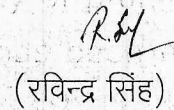 (रविन्द्र सिंह)